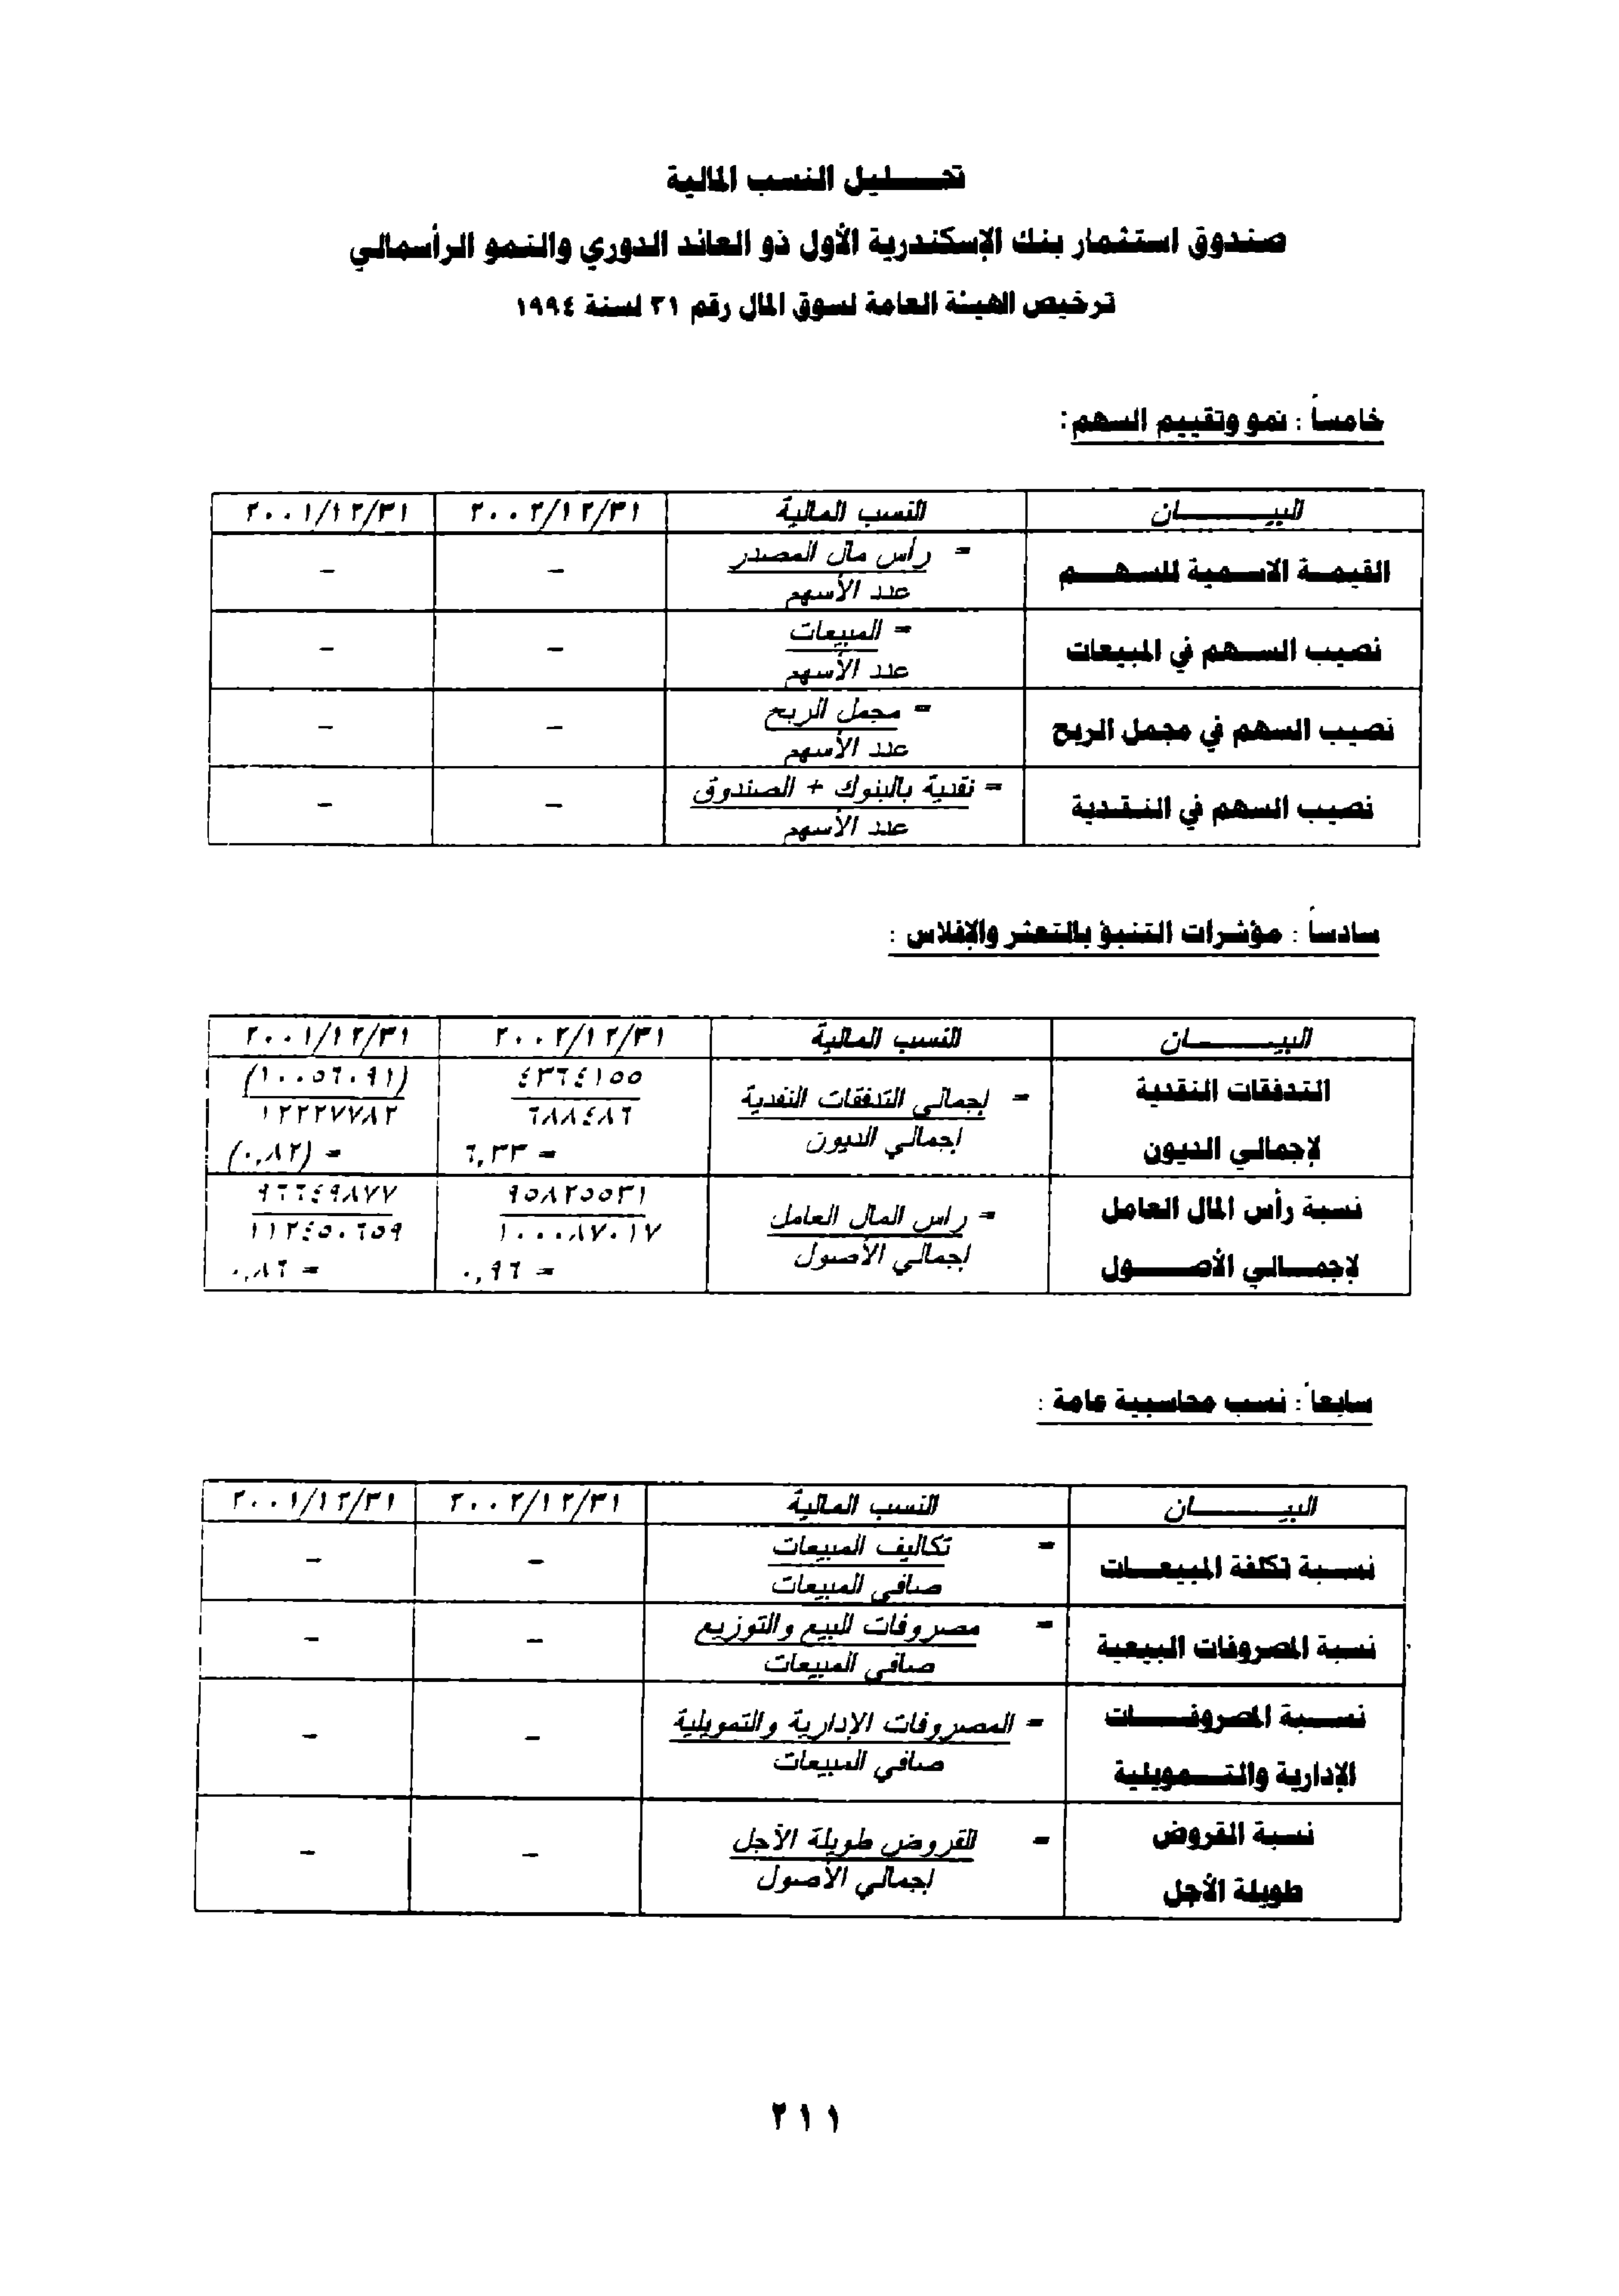 تحـــــليل النسب المالية
صندوق استثمار بنك الإسكندرية الأول ذو العائد الدوري والنمو الرأسمالي
ترخيص الهيئة العامة لسوق المال رقم ٣١ لسنة ١٩٩٤
خامساً : نمو وتقييم السهم :
البيــــــــان النسب المالية ٢٠٠٢/١٢/٣١ ٢٠٠١/١٢/٣١
القيمـــة الاسـمية للسـهــــم = رأس مال المصدر – –
عدد الأسهم
نصيب الســهم في المبيعات = المبيعات – –
عدد الأسهم
نصيب السهم في مجمل الربح = مجمل الربح – –
عدد الأسهم
نصيب السهم في النـقـدية = نقدية بالبنوك + الصندوق – –
عدد الأسهم
سادساً : مؤشرات التنبؤ بالتعثر والإفلاس :
البيــــــــان النسب المالية ٢٠٠٢/١٢/٣١ ٢٠٠١/١٢/٣١
التدفقات النقدية = إجمالي التدفقات النقدية ٤٣٦٤١٥٥ (١٠٠٥٦٠٩١)
لإجمالي الديون إجمالي الديون ٦٨٨٤٨٦ ١٢٢٢٧٧٨٢
= ٦,٣٣ = (٠,٨٢)
نسبة رأس المال العامل = راس المال العامل ٩٥٨٢٥٥٣١ ٩٦٦٤٩٨٧٧
لإجمـــالي الأصـــــول إجمالي الأصول ١٠٠٠٨٧٠١٧ ١١٢٤٥٠٦٥٩
= ٠,٩٦ = ٠,٨٦
سابعاً : نسب محاسبية عامة :
البيــــــــان النسب المالية ٢٠٠٢/١٢/٣١ ٢٠٠١/١٢/٣١
نسـبة تكلفة المبيعـــات = تكاليف المبيعات – –
صافي المبيعات
نسبة المصروفات البيعية = مصروفات البيع والتوزيع – –
صافي المبيعات
نســـبة المصروفـــــات = المصروفات الإدارية والتمويلية – –
الإدارية والتـــمويلية صافي المبيعات
نسبة القروض = القروض طويلة الأجل – –
طويلة الأجل إجمالي الأصول
٢١١